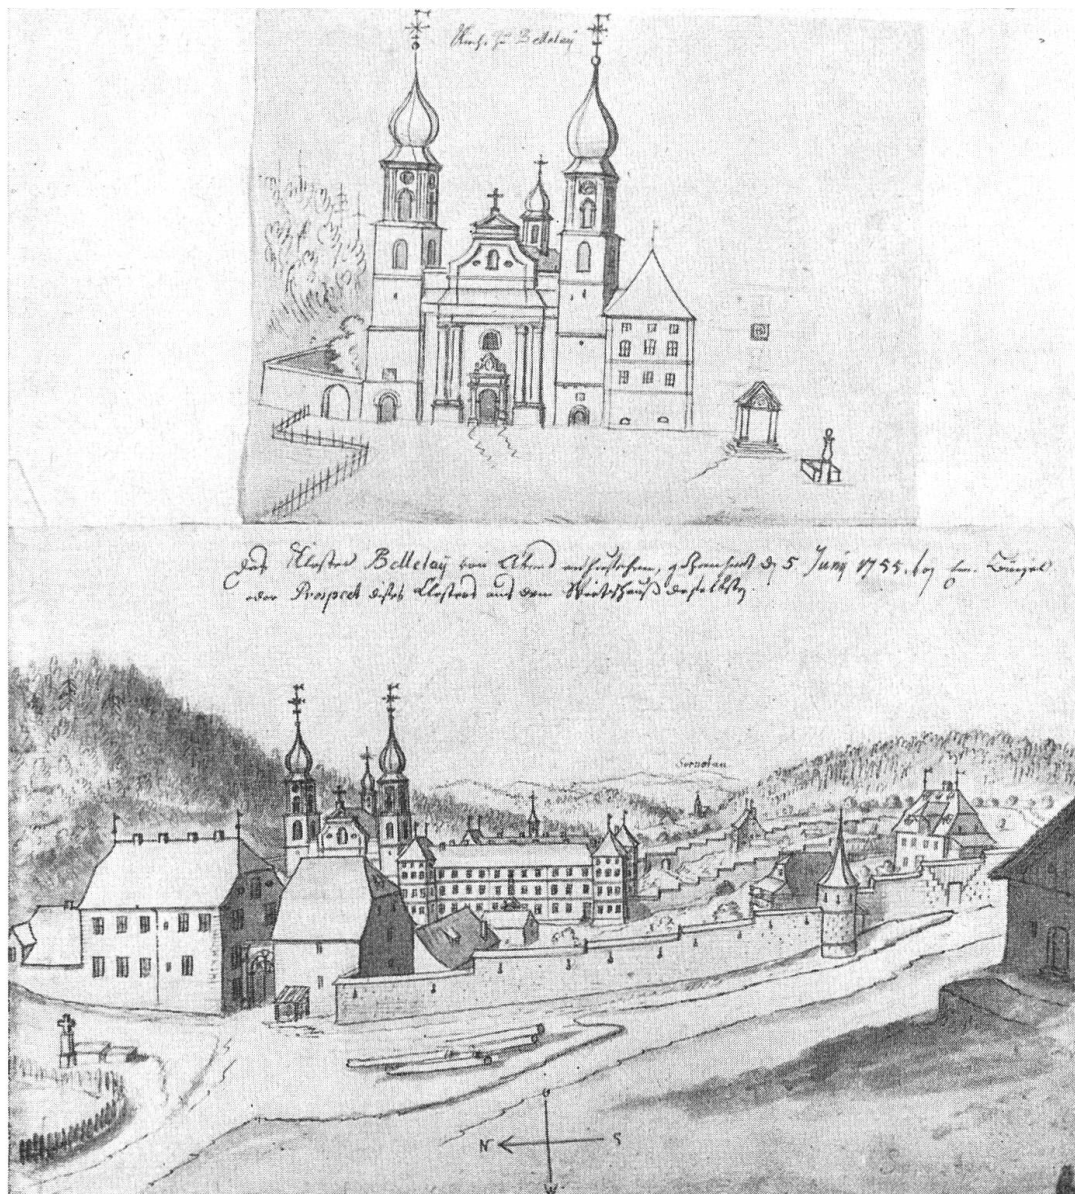 Kirch zu Bellelay
Das Kloster Bellelaÿ von Abend anzusehen, gezeichnet d. 5 Junÿ 1755. von
oder Prospect dises Closters aus dem Wirtshauß daselbsten
Sornetan
N S
O
W